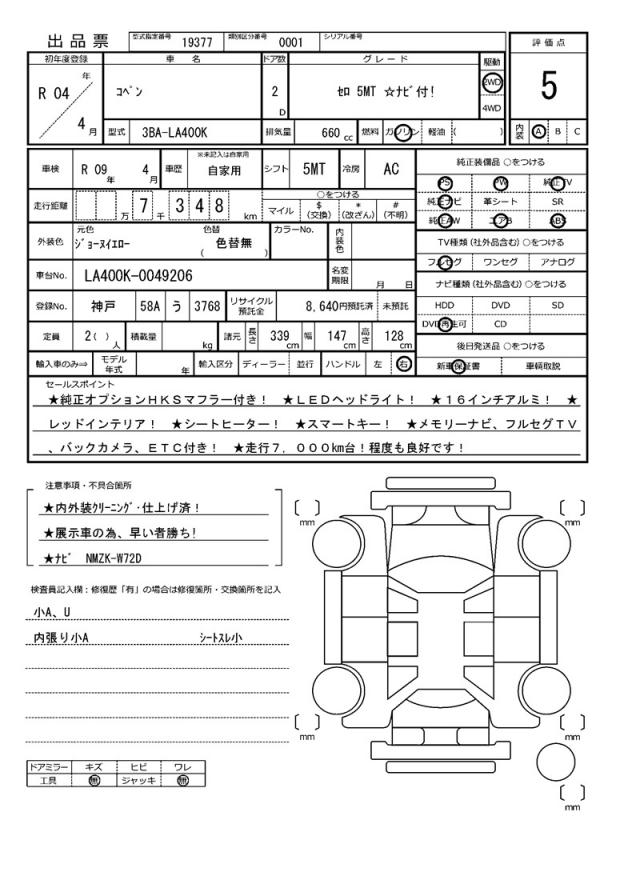 出品票 型式指定番号 19377 類別区分番号 0001 シリアル番号
評価点
5
内装 A B C
初年度登録 車名 ドア数 グレード 駆動
R 04 年 4 月 コペン 2 D セロ 5MT ☆ナビ付! 2WD 4WD
型式 3BA-LA400K 排気量 660 cc 燃料 ガソリン 軽油 ( )
車検 R 09 年 4 月 車歴 ※未記入は自家用 自家用 シフト 5MT 冷房 AC
走行距離 万 7 千 3 4 8 km ○をつける マイル $(交換) *(改ざん) #(不明)
外装色 元色 ジョーヌイエロー 色替 色替無 ( ) カラーNo. 内装色
車台No. LA400K-0049206 名変期限 月 日
登録No. 神戸 58A う 3768 リサイクル預託金 8,640円預託済 未預託
定員 2( ) 人 積載量 kg 諸元 長さ 339 cm 幅 147 cm 高さ 128 cm
輸入車のみ⇒ モデル年式 年 輸入区分 ディーラー 並行 ハンドル 左 右
純正装備品 ○をつける
PS PW 純正TV
純正ナビ 革シート SR
純正AW エアB ABS
TV種類(社外品含む) ○をつける
フルセグ ワンセグ アナログ
ナビ種類(社外品含む) ○をつける
HDD DVD SD
DVD再生可 CD
後日発送品 ○をつける
新車保証書 車輌取説
セールスポイント
★純正オプションHKSマフラー付き! ★LEDヘッドライト! ★16インチアルミ! ★
レッドインテリア! ★シートヒーター! ★スマートキー! ★メモリーナビ、フルセグTV
、バックカメラ、ETC付き! ★走行7,000km台!程度も良好です!
注意事項・不具合箇所
★内外装クリーニング・仕上げ済!
★展示車の為、早い者勝ち!
★ナビ NMZK-W72D
検査員記入欄:修復歴「有」の場合は修復箇所・交換箇所を記入
小A、U
内張り小A シートスレ小
ドアミラー キズ ヒビ ワレ
工具 無 ジャッキ 無
mm
mm
mm
mm
mm